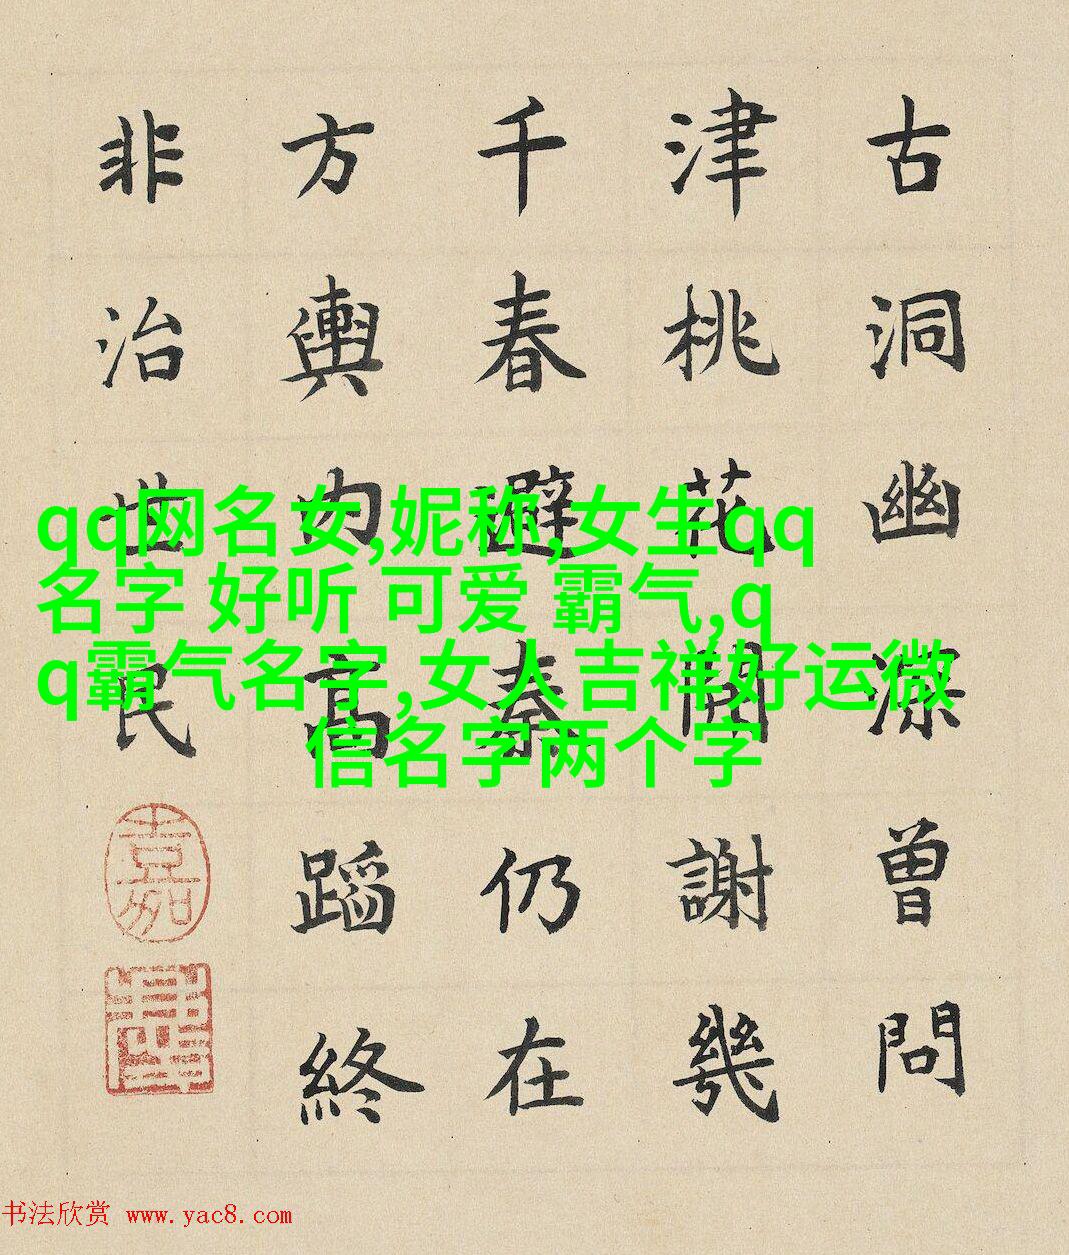 古洞幽深曾問
津桃花開謝幾
千春避秦仍在
方輿内高蹈終
非治世民
qq网名女,妮称,女生qq
名字 好听 可爱 霸气,q
q霸气名字,女人吉祥好运微
信名字两个字
书法欣赏 www.yac8.com